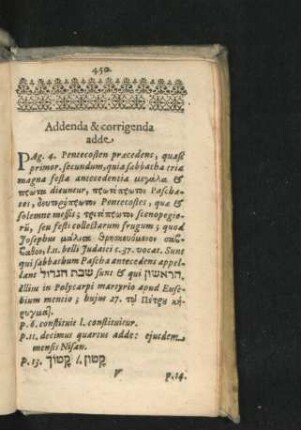 450.
Addenda & corrigenda
adde.
PAg. 4. Pentecosten præcedens, quasi
primor. secundum, quia sabbatha tria
magna festa antecedentia μεγάλα &
πρωτα dicuntur, πρωτόπρωτον Pascha-
tos, δευτερόπρωτον Pentecostes, qua &
solemne messis; τριτόπρωτον scenopegio-
rū, seu festi collectarum frugum; quod
Josephus μάλιστα θρησκευόμενον σάβ-
βατον, l. 2. belli Judaici c. 37. vocat. Sunt
qui sabbathum Pascha antecedens appel-
lant שבת הגדול sunt & qui הראשון,
illius in Polycarpi martyrio apud Euse-
bium mentio; hujus 27. τῶ Πέτρου κη-
ρυγμα.
p. 6. constituit l. constituitur.
p. 11. decimus quartus adde: ejusdem
mensis Nisan.
p. 13. קטון. l. קטוך
V
p. 14.